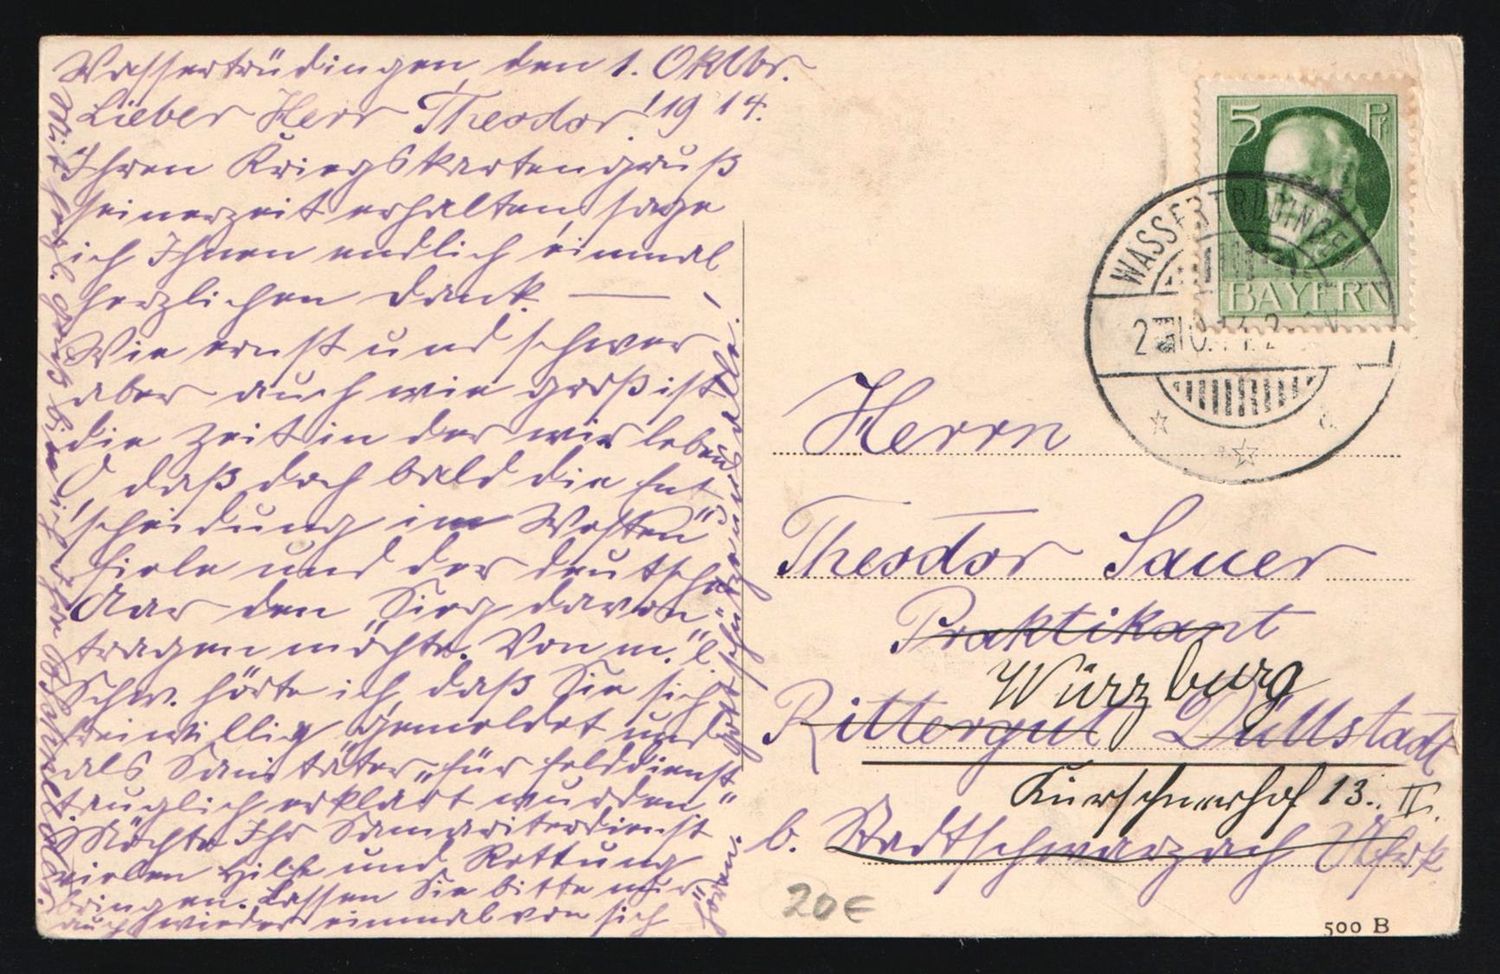 Wassertrüdingen, den 1. Oktbr.
Lieber Herr Theodor! 1914.
Ihren Kriegskartengruß
seinerzeit erhalten, sage
ich Ihnen endlich einmal
herzlichen Dank. —
Wie ernst und schwer
aber auch wie groß ist
die Zeit in der wir leben!
O daß doch bald die Ent,
scheidung im Westen
fiele und der deutsche
Aar den Sieg davon
tragen möchte. Von m. l.
Schw. hörte ich, daß Sie sich
freiwillig gemeldet und
als Sanitäter „für felddienst
tauglich erklärt wurden"
Möchte Ihr Samariterdienst
vielen Hilfe und Rettung
bringen. Lassen Sie bitte nur
auch wieder einmal von sich
hören!
Gott schütze uns alle!
Mit herzl. Gruß bin ich Ihre
5 Pf
BAYERN
WASSERTRÜDINGEN
2 10.14. 2
Herrn
Theodor Sauer
Praktikant
Würzburg
Rittergut Düllstadt
Kürschnerhof 13. II.
b. Stadtschwarzach Ufrk.
20€
500 B